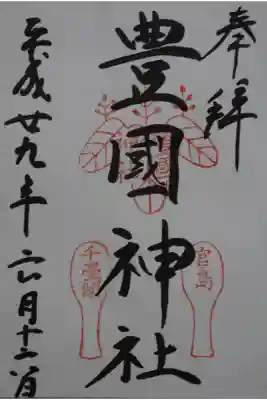 奉拜
豊國神社
宮島
千畳閣
平成廿九年六月十二日